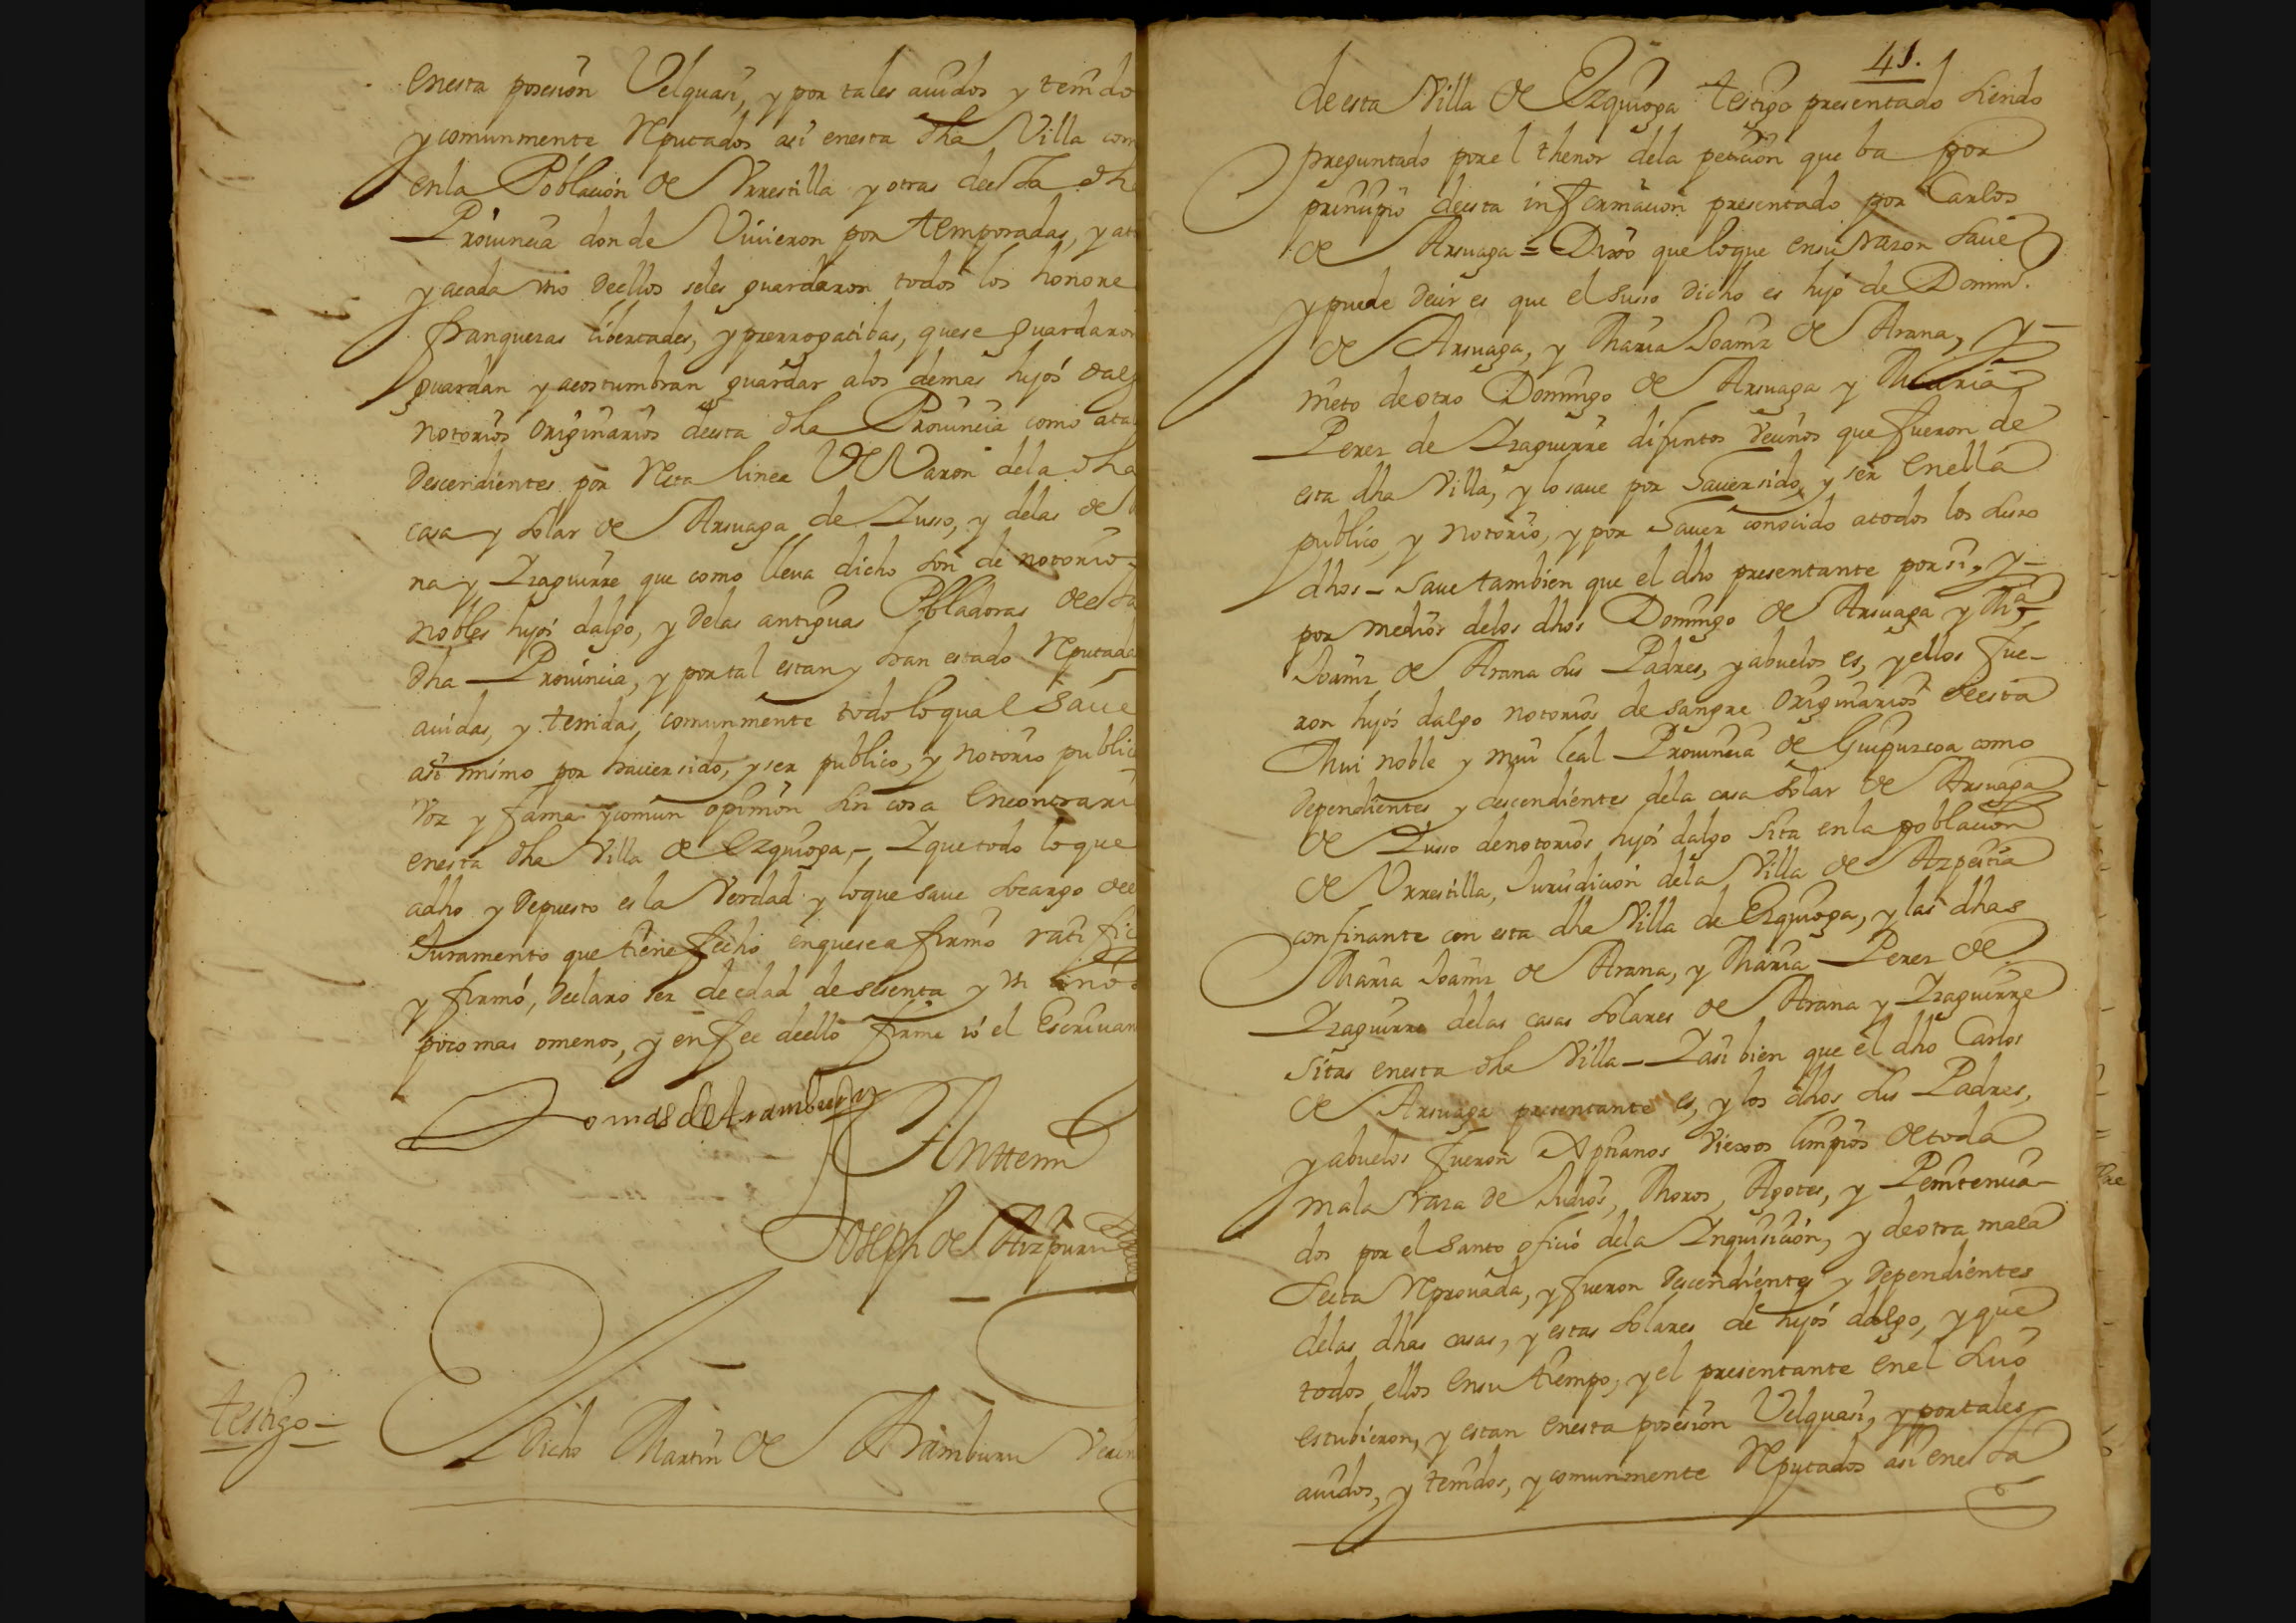 enesta posesion Velquasi, y por tales auidos y tenido
y comunmente Reputados asi enesta dha Villa com
enla Poblacion de Vrrestilla y otras deesta dha
Prouincia donde Viuieron por temporadas, y a
y acada vno deellos seles guardaron todos los honore
franquezas libertades, y prerrogatibas, quese guardaron
guardan y acostumbran guardar alos demas hijos dalg
notorios originarios deesta dha Prouincia como ata
Descendientes por Recta linea de Varon dela dha
casa y solar de Arsuaga de Zusso, y delas de
na y Yzaguirre que como lleua dicho son de notorio
nobles hijos dalgo, y delas antiguas Pobladoras deesta
dha Prouincia, y por tal estan y han estado Reputada
auidas, y tenidas comunmente todo loqual saue
asi mismo por hauer sido, y ser publico, y notorio public
voz y fama y comun opinion sin cosa encontrari
enesta dha Villa de Ezquioga,- Y que todo lo que
adho y Depuesto es la Verdad y loque saue socargo deel
Juramento que tiene fecho enquese afirmo ratific
y firmó, Declaro ser de edad de sesenta y vn años
poco mas omenos, y enfee deello firme ió el Escriuan
Tomas de Aramburu
Anttemi
Joseph de Aizpuru
testigo-
Dicho Martin de Aramburu Vecin
41.
deesta Villa de Ezquioga testigo presentado siendo
preguntado por el thenor dela peticion que ba por
principio deesta informacion presentado por Carlos
de Arsuaga = Dixo que loque ensu razon saue
y puede decir es que el susso dicho es hijo de Domin.
de Arsuaga, y Maria Joaniz de Arana, y-
nieto deotro Domingo de Arsuaga y Maria
Perez de Yzaguirre difuntos vecinos que fueron de
esta dha Villa, y lo saue por hauer sido, y ser enella
publico, y notorio, y por hauer conocido atodos los suso
dhos - saue tambien que el dho presentante por si, y-
por medios delos dhos Domingo de Arsuaga y Ma
Joaniz de Arana sus Padres, y abuelos es, y ellos fue-
ron hijos dalgo notorios de sangre originarios deesta
Mui noble y mui leal Prouincia de Guipuzcoa como
dependientes y descendientes dela casa solar de Arsuaga
de Zusso denotorios hijos dalgo sita enla poblacion
de Vrrestilla, Jurisdicion dela Villa de Azpeitia
confinante con esta dha Villa de Ezquioga, y las dhas
Maria Joaniz de Arana, y Maria Perez de
Yzaguirre delas casas solares de Arana y Yzaguirre
sitas enesta dha Villa - Y asi bien que el dho Carlos
de Arsuaga presentante es, y los dhos sus Padres,
y abuelos fueron Xptianos viexos limpios de toda
mala Raza de Judios, Moros, Agotes, y Penitencia-
dos por el santo oficio dela Ynquisicion, y deotra mala
secta Reprouada, y fueron descendientes y dependientes
delas dhas casas, y estas solares de hijos dalgo, y que
todos ellos ensu tiempo, y el presentante enel suio
estubieron, y estan enesta posesion Velquasi, y portales
auidos, y tenidos, y comunmente Reputados asi enesta